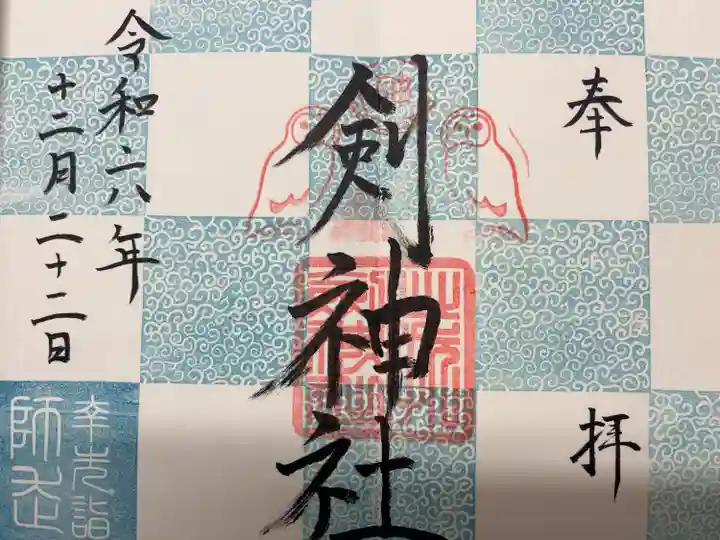 奉拝
剣神社
令和六年
十二月二十二日
幸先詣
師走